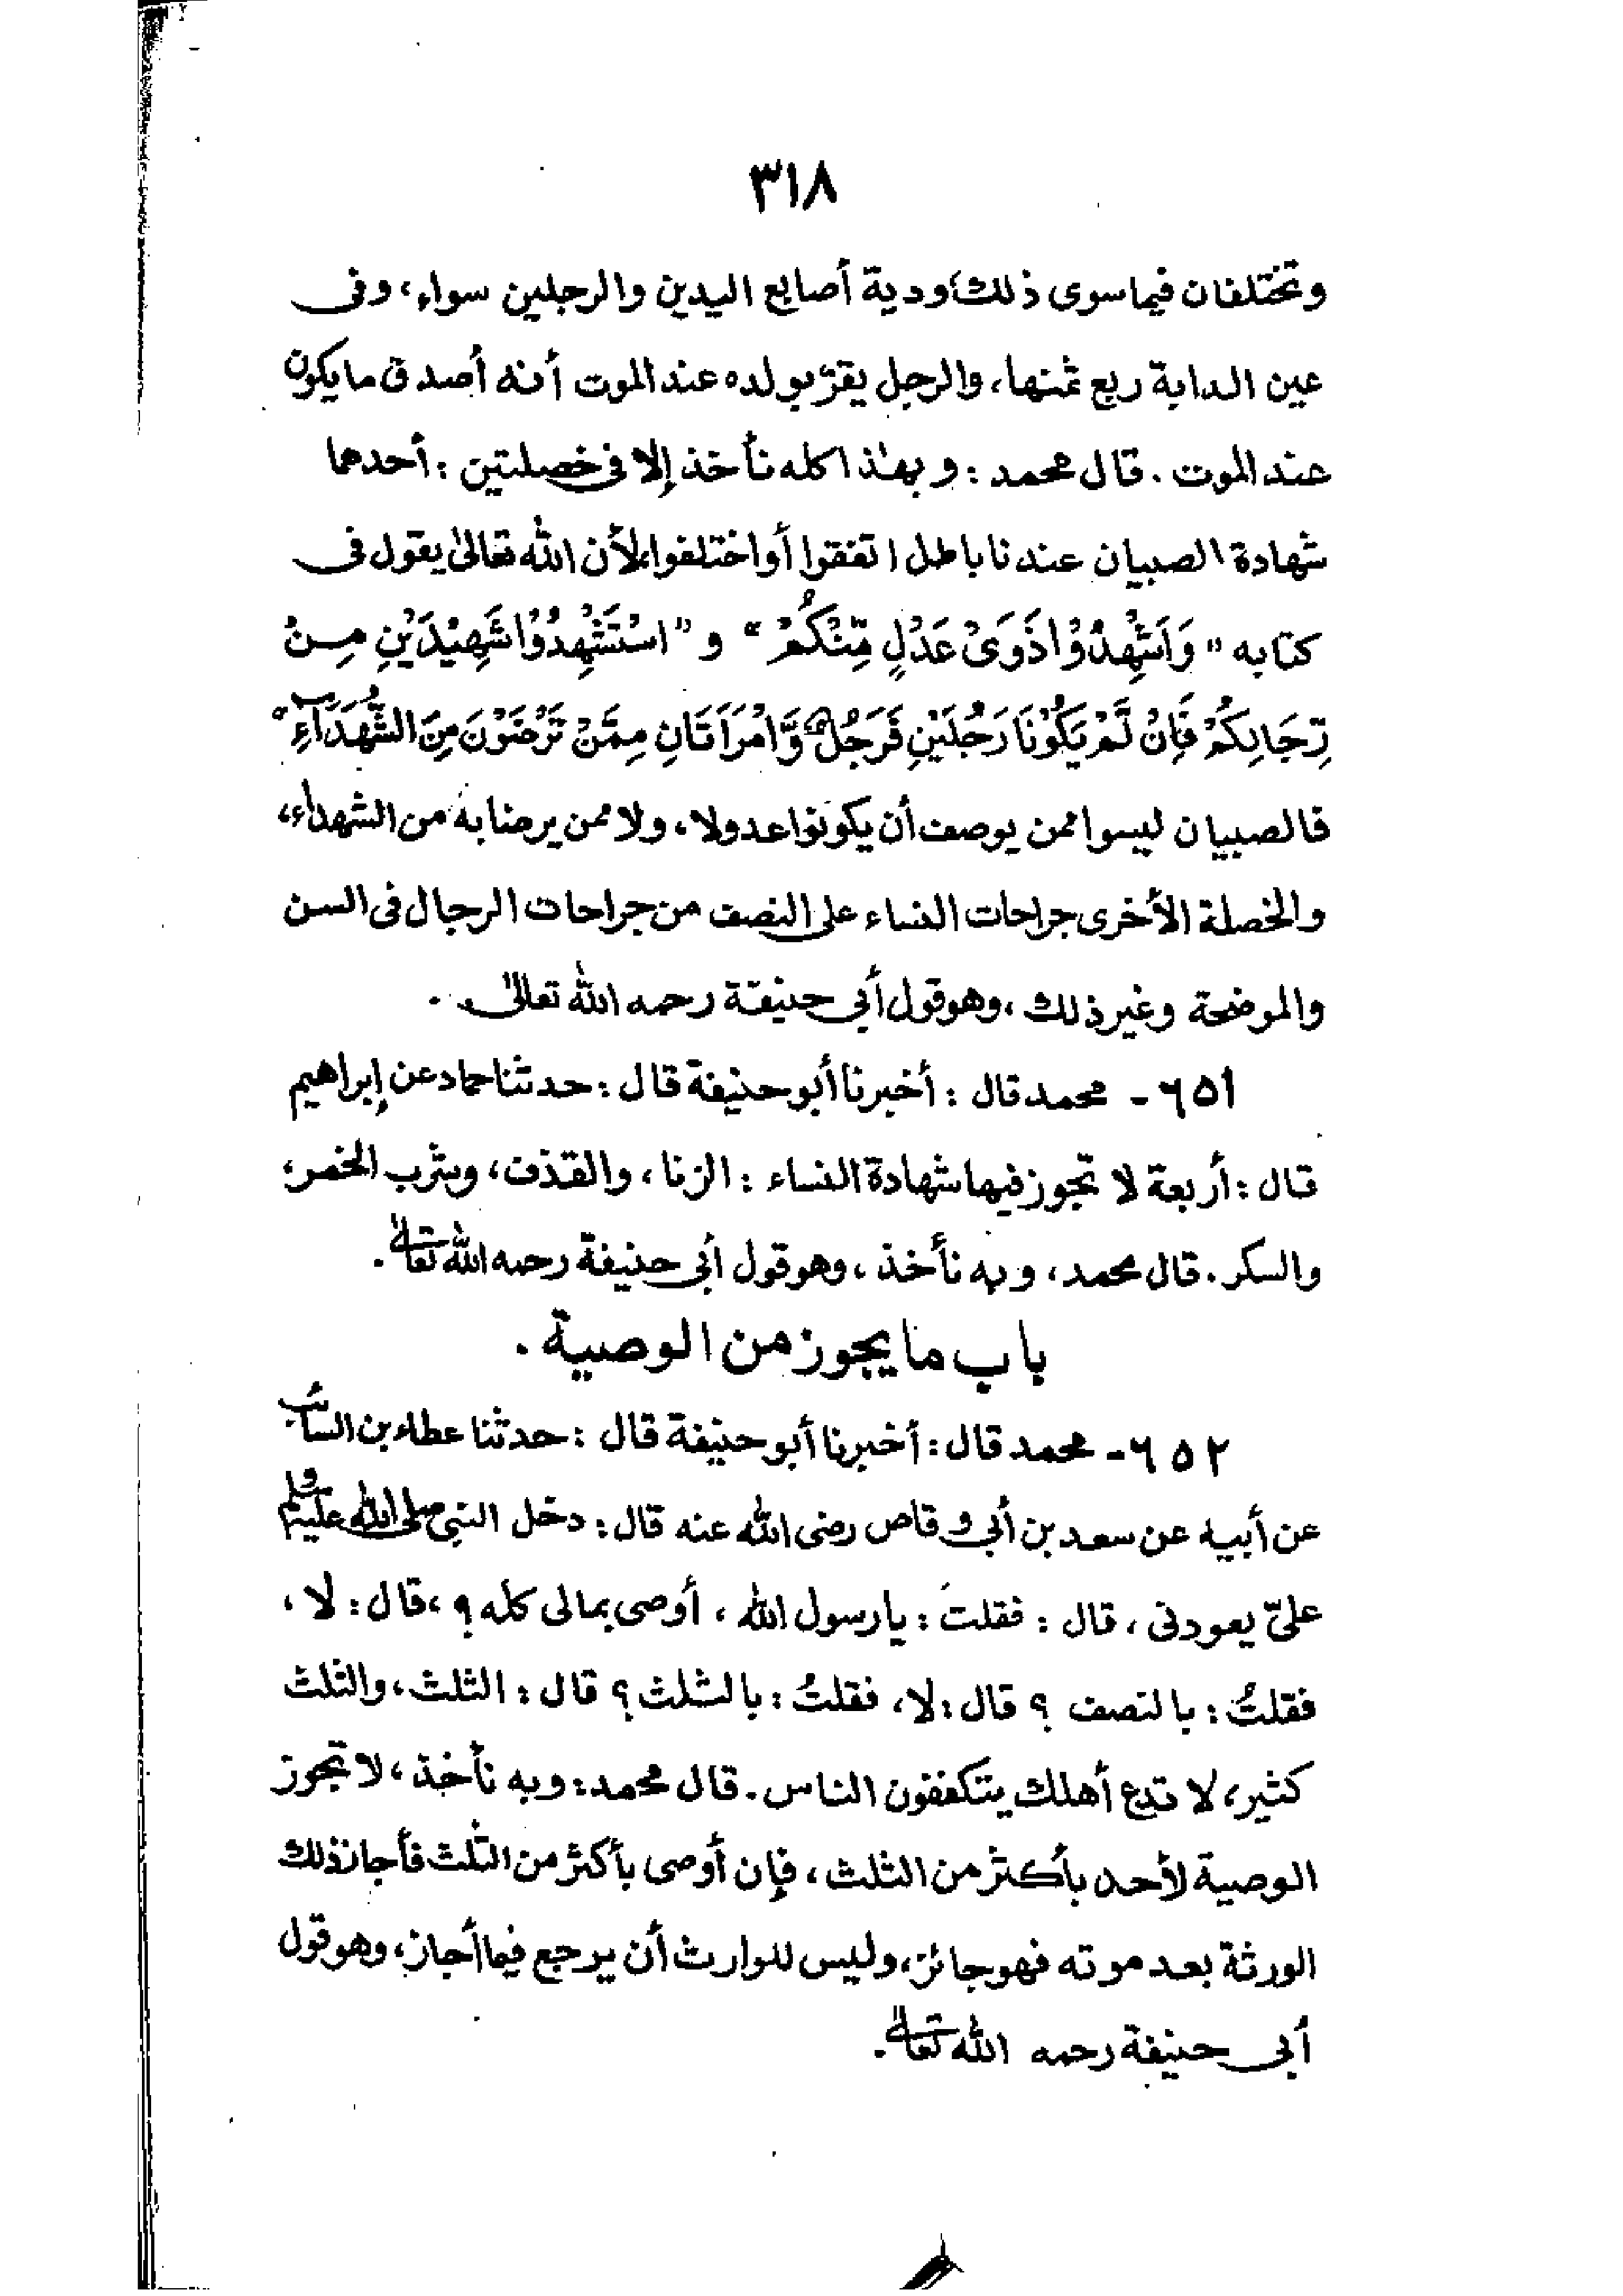 ٣١٨
وتختلفان فيما سوى ذلك، ودية أصابع اليدين والرجلين سواء، وفى
عين الدابة ربع ثمنها، والرجل يقرّ بولده عند الموت أنه أصدق ما يكون
عند الموت . قال محمد : وبهٰذا كله نأخذ إلا فى خصلتين : أحدهما
شهادة الصبيان عندنا باطل اتفقوا أو اختلفوا، لأن الله تعالىٰ يقول فى
كتابه " وَاَشْهِدُوْا ذَوَىْ عَدْلٍ مِّنْكُمْ " و " اسْتَشْهِدُوْا شَهِيْدَيْنِ مِنْ
رِّجَالِكُمْ فَاِنْ لَّمْ يَكُوْنَا رَجُلَيْنِ فَرَجُلٌ وَّامْرَاَتَانِ مِمَّنْ تَرْضَوْنَ مِنَ الشُّهَدَاءِ "
فالصبيان ليسوا ممن يوصف أن يكونوا عدولا، ولا ممن يرضا به من الشهداء،
والخصلة الأخرى جراحات النساء على النصف من جراحات الرجال فى السن
والموضحة وغير ذلك ، وهو قول أبي حنيفة رحمه الله تعالىٰ .
٦٥١ - محمد قال : أخبرنا أبو حنيفة قال : حدثنا حماد عن إبراهيم
قال : أربعة لا تجوز فيها شهادة النساء : الزنا ، والقذف ، وشرب الخمر،
والسكر . قال محمد ، وبه نأخذ ، وهو قول أبى حنيفة رحمه الله تعالىٰ .
باب ما يجوز من الوصية .
٦٥٢ - محمد قال : أخبرنا أبو حنيفة قال : حدثنا عطاء بن السائب
عن أبيه عن سعد بن أبي وقاص رضى الله عنه قال : دخل النبي صلى الله عليه وسلم
علىّ يعودنى ، قال : فقلتُ : يا رسول الله ، أوصى بمالى كله ؟ ، قال : لا ،
فقلتُ : بالنصف ؟ قال : لا ، فقلتُ : بالثلث ؟ قال : الثلث ، والثلث
كثير ، لا تدع أهلك يتكففون الناس . قال محمد : وبه نأخذ ، لا تجوز
الوصية لأحد بأكثر من الثلث ، فإن أوصى بأكثر من الثلث فأجاز ذلك
الورثة بعد موته فهو جائز، وليس للوارث أن يرجع فيما أجاز، وهو قول
أبى حنيفة رحمه الله تعالىٰ .